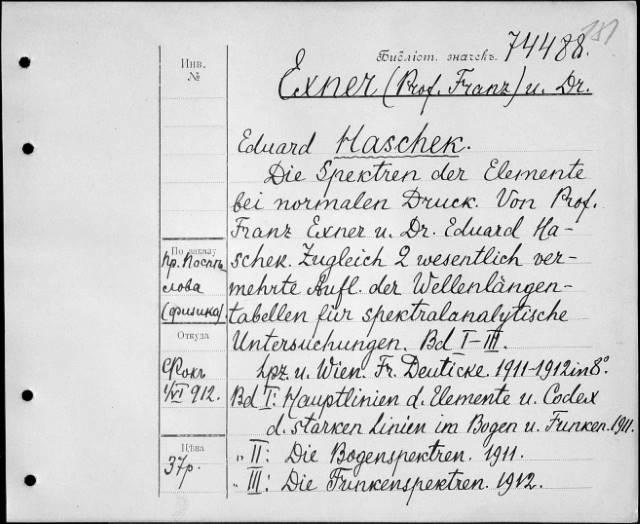 151
Инв.
№
Библіот. значекъ. 74488.
Exner (Prof. Franz) u. Dr.
Eduard Haschek.
Die Spektren der Elemente
bei normalen Druck. Von Prof.
Franz Exner u. Dr. Eduard Ha-
По заказу
schek. Zugleich 2 wesentlich ver-
пр. Постъ
слова
mehrte Aufl. der Wellenlängen-
(физика).
tabellen für spektralanalytische
Откуда
Untersuchungen. Bd I-III.
Lpz. u. Wien. Fr. Deuticke. 1911-1912 in 8°.
1/VI 912.
Bd I: Hauptlinien d. Elemente u. Codex
d. starken Linien im Bogen u. Funken. 1911.
Цѣна
37 р.
" II: Die Bogenspektren. 1911.
" III: Die Funkenspektren. 1912.